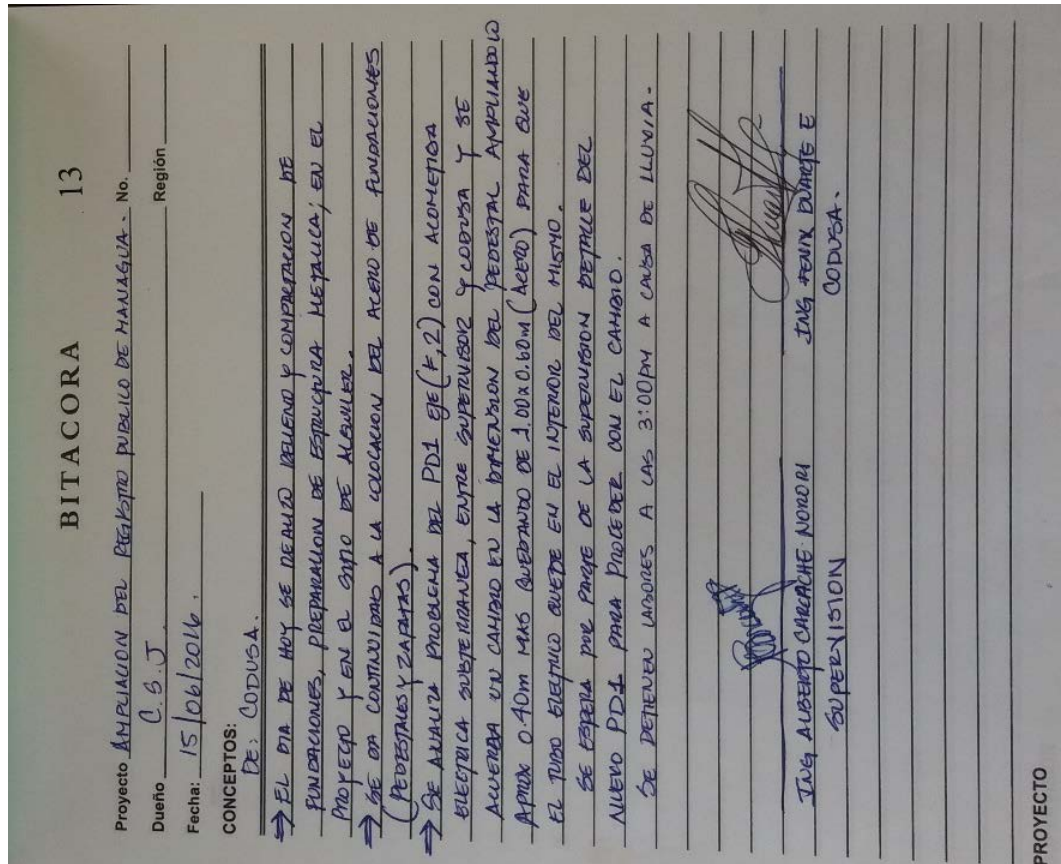 BITACORA 13
Proyecto AMPLIACION DEL REGISTRO PUBLICO DE MANAGUA. No.
Dueño C.S.J Región
Fecha: 15/06/2016.
CONCEPTOS:
DE: CODUSA.
⇒ EL DIA DE HOY SE REALIZO RELLENO Y COMPACTACION DE
FUNDACIONES, PREPARACION DE ESTRUCTURA METALICA; EN EL
PROYECTO Y EN EL SITIO DE ALQUILER.
⇒ SE DA CONTINUIDAD A LA COLOCACION DEL ACERO DE FUNDACIONES
(PEDESTALES Y ZAPATAS).
⇒ SE ANALIZA PROBLEMA DEL PD1 EJE (F,2) CON ACOMETIDA
ELECTRICA SUBTERRANEA, ENTRE SUPERVISOR Y CODUSA Y SE
ACUERDA UN CAMBIO EN LA DIMENSION DEL PEDESTAL AMPLIANDOLO
APROX 0.40m MAS QUEDANDO DE 1.00 x 0.60m (ACERO) PARA QUE
EL TUBO ELECTRICO QUEDE EN EL INTERIOR DEL MISMO.
SE ESPERA POR PARTE DE LA SUPERVISION DETALLE DEL
NUEVO PD1 PARA PROCEDER CON EL CAMBIO.
SE DETIENEN LABORES A LAS 3:00PM A CAUSA DE LLUVIA.
ING ALBERTO CARCACHE NORORI ING FENIX DUARTE E
SUPERVISION CODUSA.
PROYECTO